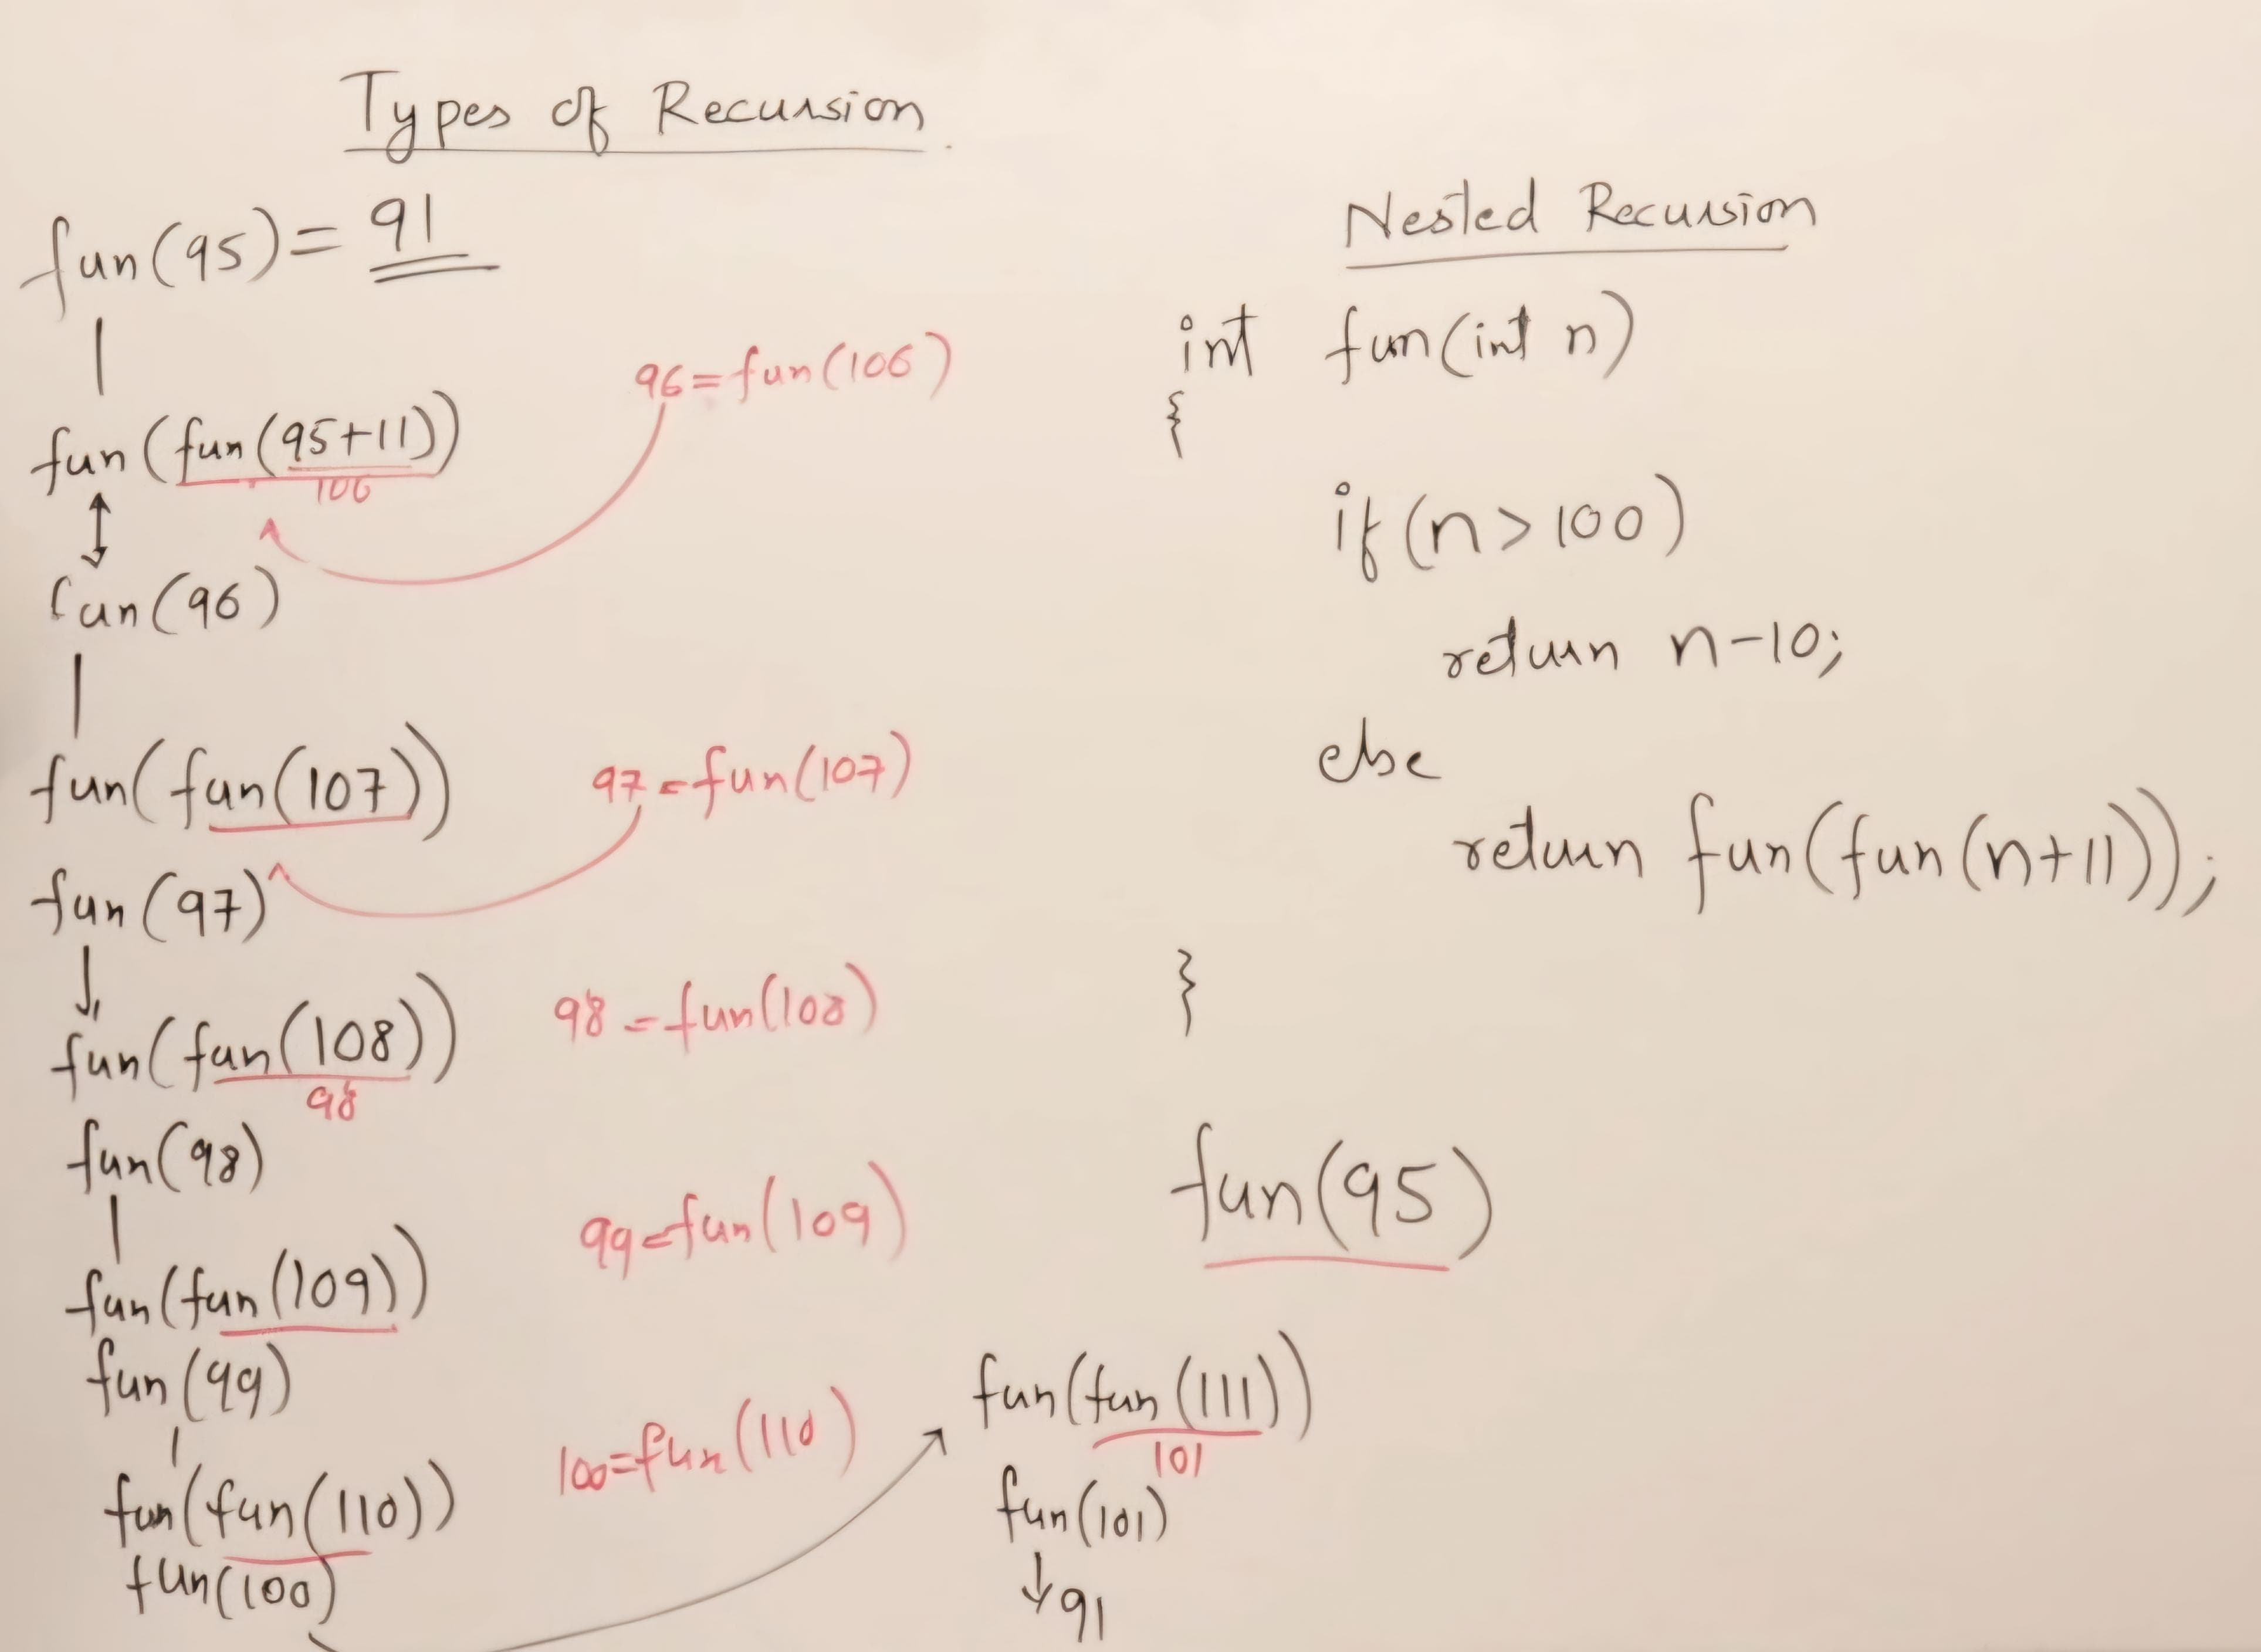 Types of Recursion
fun(95) = 91
fun(fun(95+11))
106
96=fun(106)
fun(96)
fun(fun(107))
97=fun(107)
fun(97)
fun(fun(108))
98
98=fun(108)
fun(98)
fun(fun(109))
99=fun(109)
fun(99)
fun(fun(110))
100=fun(110)
fun(100)
Nested Recursion
int fun(int n)
{
if(n>100)
return n-10;
else
return fun(fun(n+11));
}
fun(95)
fun(fun(111))
101
fun(101)
91